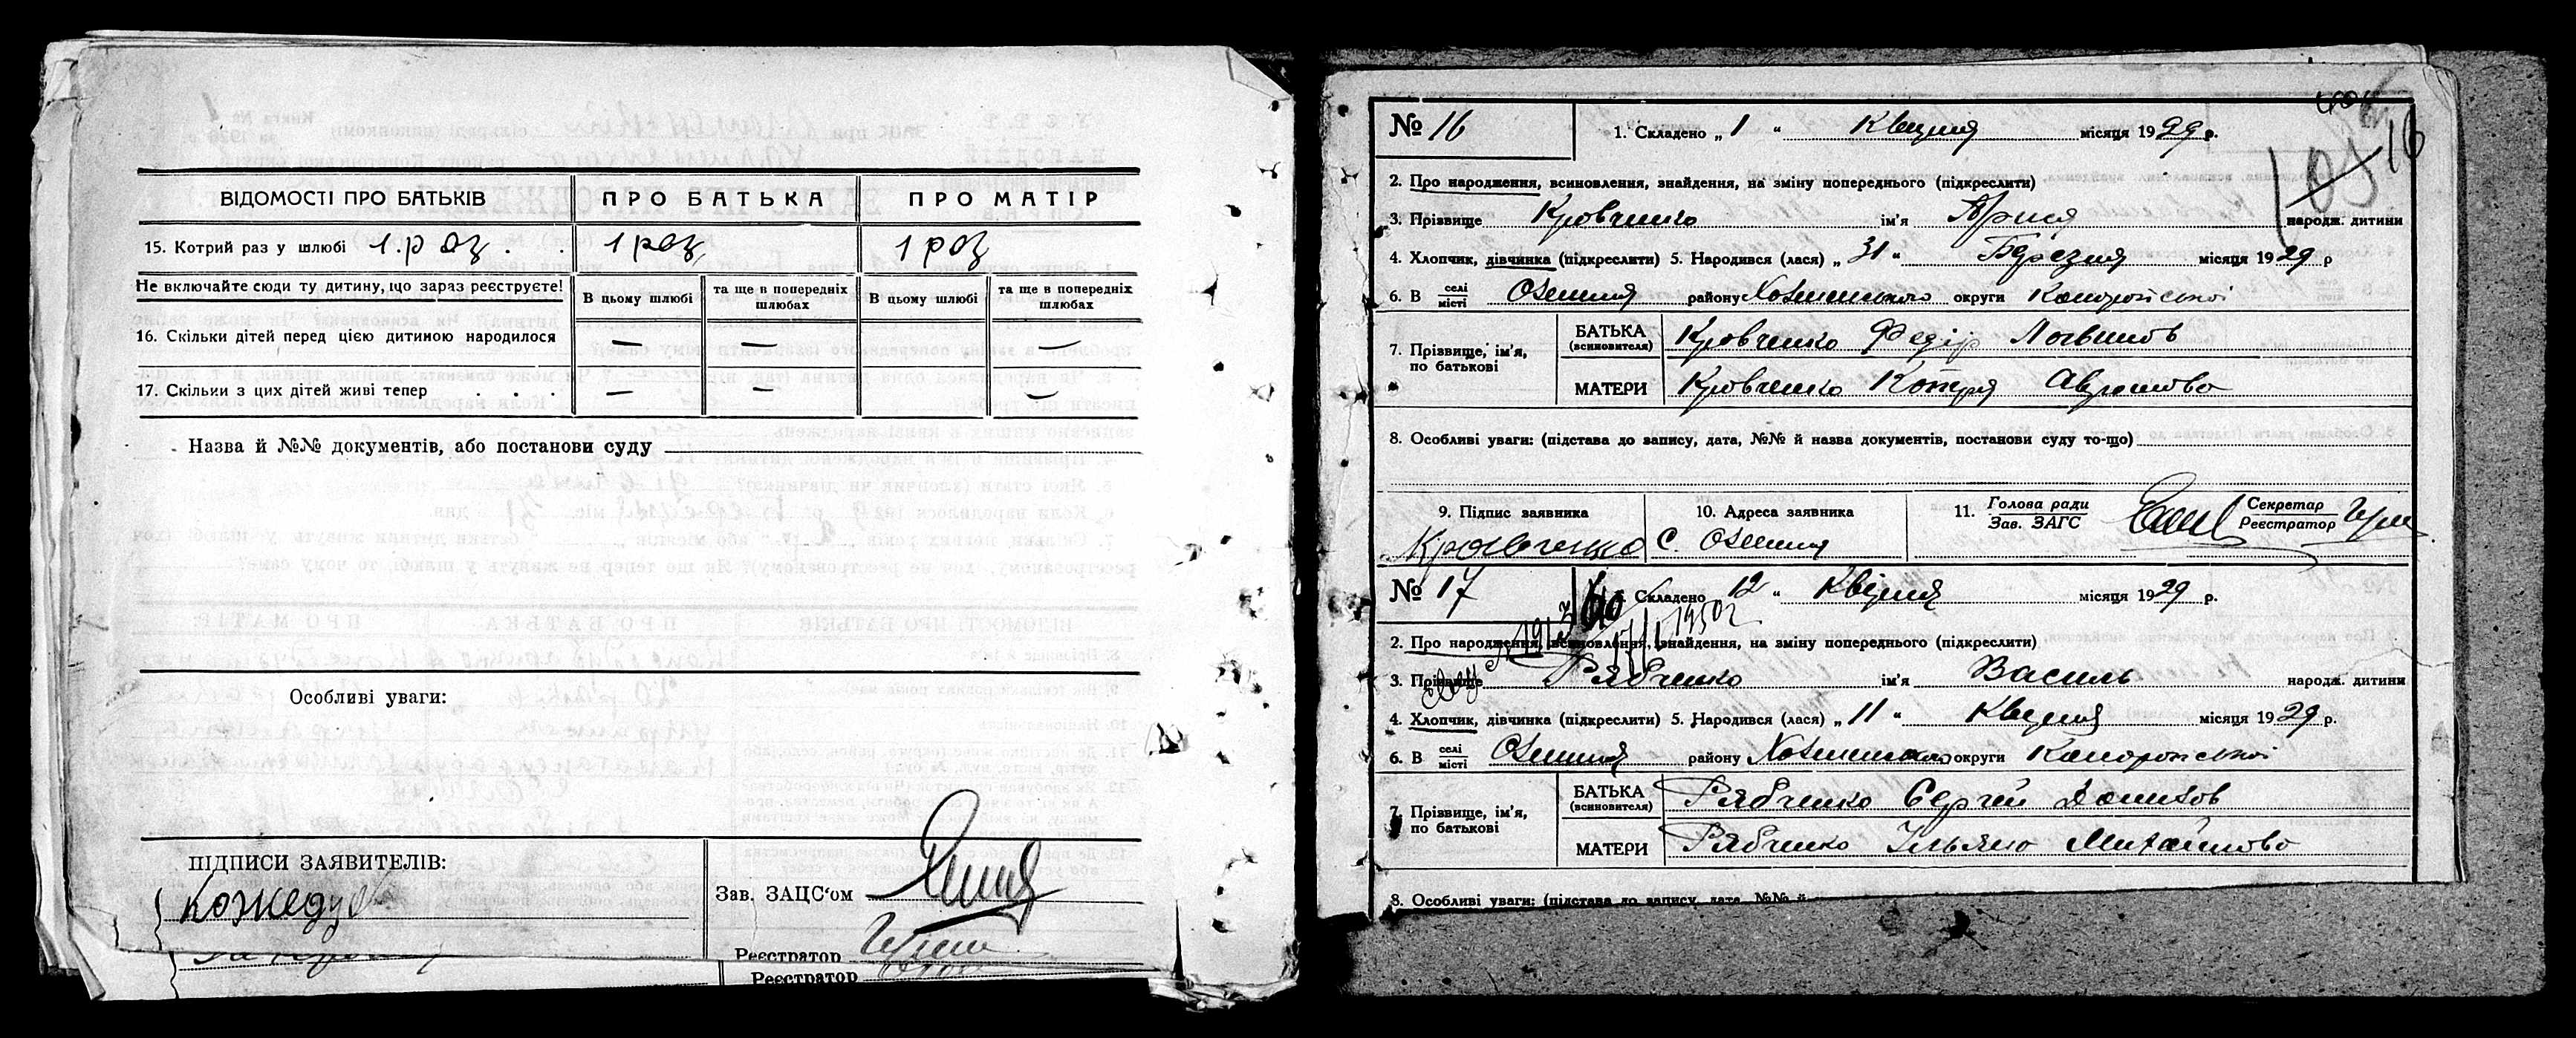 ВІДОМОСТІ ПРО БАТЬКІВ ПРО БАТЬКА ПРО МАТІР
15. Котрий раз у шлюбі 1. раз . . 1 раз, 1 раз
Не включайте сюди ту дитину, що зараз реєструєте! В цьому шлюбі та ще в попередніх шлюбах В цьому шлюбі та ще в попередніх шлюбах
16. Скільки дітей перед цією дитиною народилося — — — —
17. Скільки з цих дітей живі тепер . . . — — — —
Назва й №№ документів, або постанови суду
Особливі уваги:
ПІДПИСИ ЗАЯВИТЕЛІВ:
Кожедуб
Зав. ЗАЦС'ом
Реєстратор
Реєстратор
105 16
№ 16 1. Складено „ 1 “ Квітня місяця 1929 р.
2. Про народження, всиновлення, знайдення, на зміну попереднього (підкреслити)
3. Прізвище Кравченко ім'я народж. дитини
4. Хлопчик, дівчинка (підкреслити) 5. Народився (лася) „ 31 “ Березня місяця 1929 р
6. В селі місті району округи
7. Прізвище, ім'я, по батькові
БАТЬКА (всиновителя) Кравченко Федір
МАТЕРИ Кравченко Катря
8. Особливі уваги: (підстава до запису, дата, №№ й назва документів, постанови суду то-що)
9. Підпис заявника 10. Адреса заявника 11. Голова ради Зав. ЗАГС Секретар Реєстратор
Кравченко С.
№ 17 1. Складено „ 12 “ Квітня місяця 1929 р.
2. Про народження, всиновлення, знайдення, на зміну попереднього (підкреслити)
3. Прізвище Рябченко ім'я Василь народж. дитини
4. Хлопчик, дівчинка (підкреслити) 5. Народився (лася) „ 11 “ Квітня місяця 1929 р.
6. В селі місті району округи
7. Прізвище, ім'я, по батькові
БАТЬКА (всиновителя) Рябченко Сергій
МАТЕРИ Рябченко Ульяна Михайлова
8. Особливі уваги: (підстава до запису, дата, №№ й